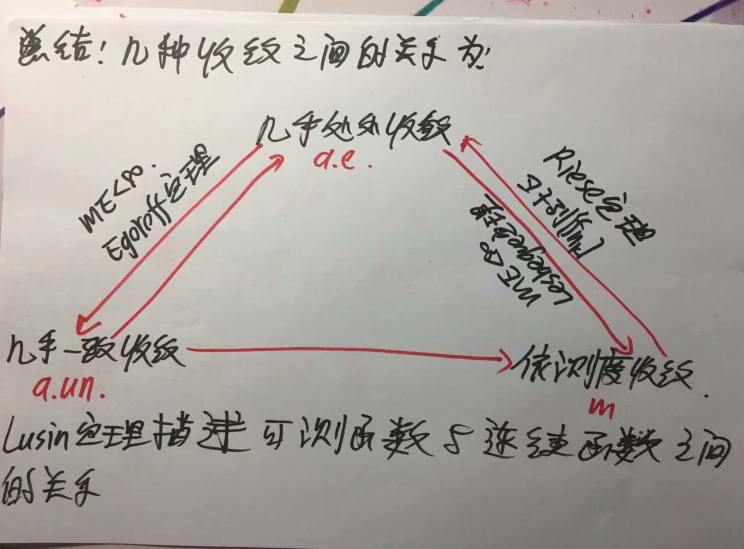 总结:几种收敛之间的关系为:
几乎处处收敛
a.e.
mE<∞.
Egoroff定理
Riesz定理
子列{fnj}
mE<∞
Lesbegue定理
几乎一致收敛
a.un.
依测度收敛.
m
Lusin定理描述可测函数与连续函数之间
的关系